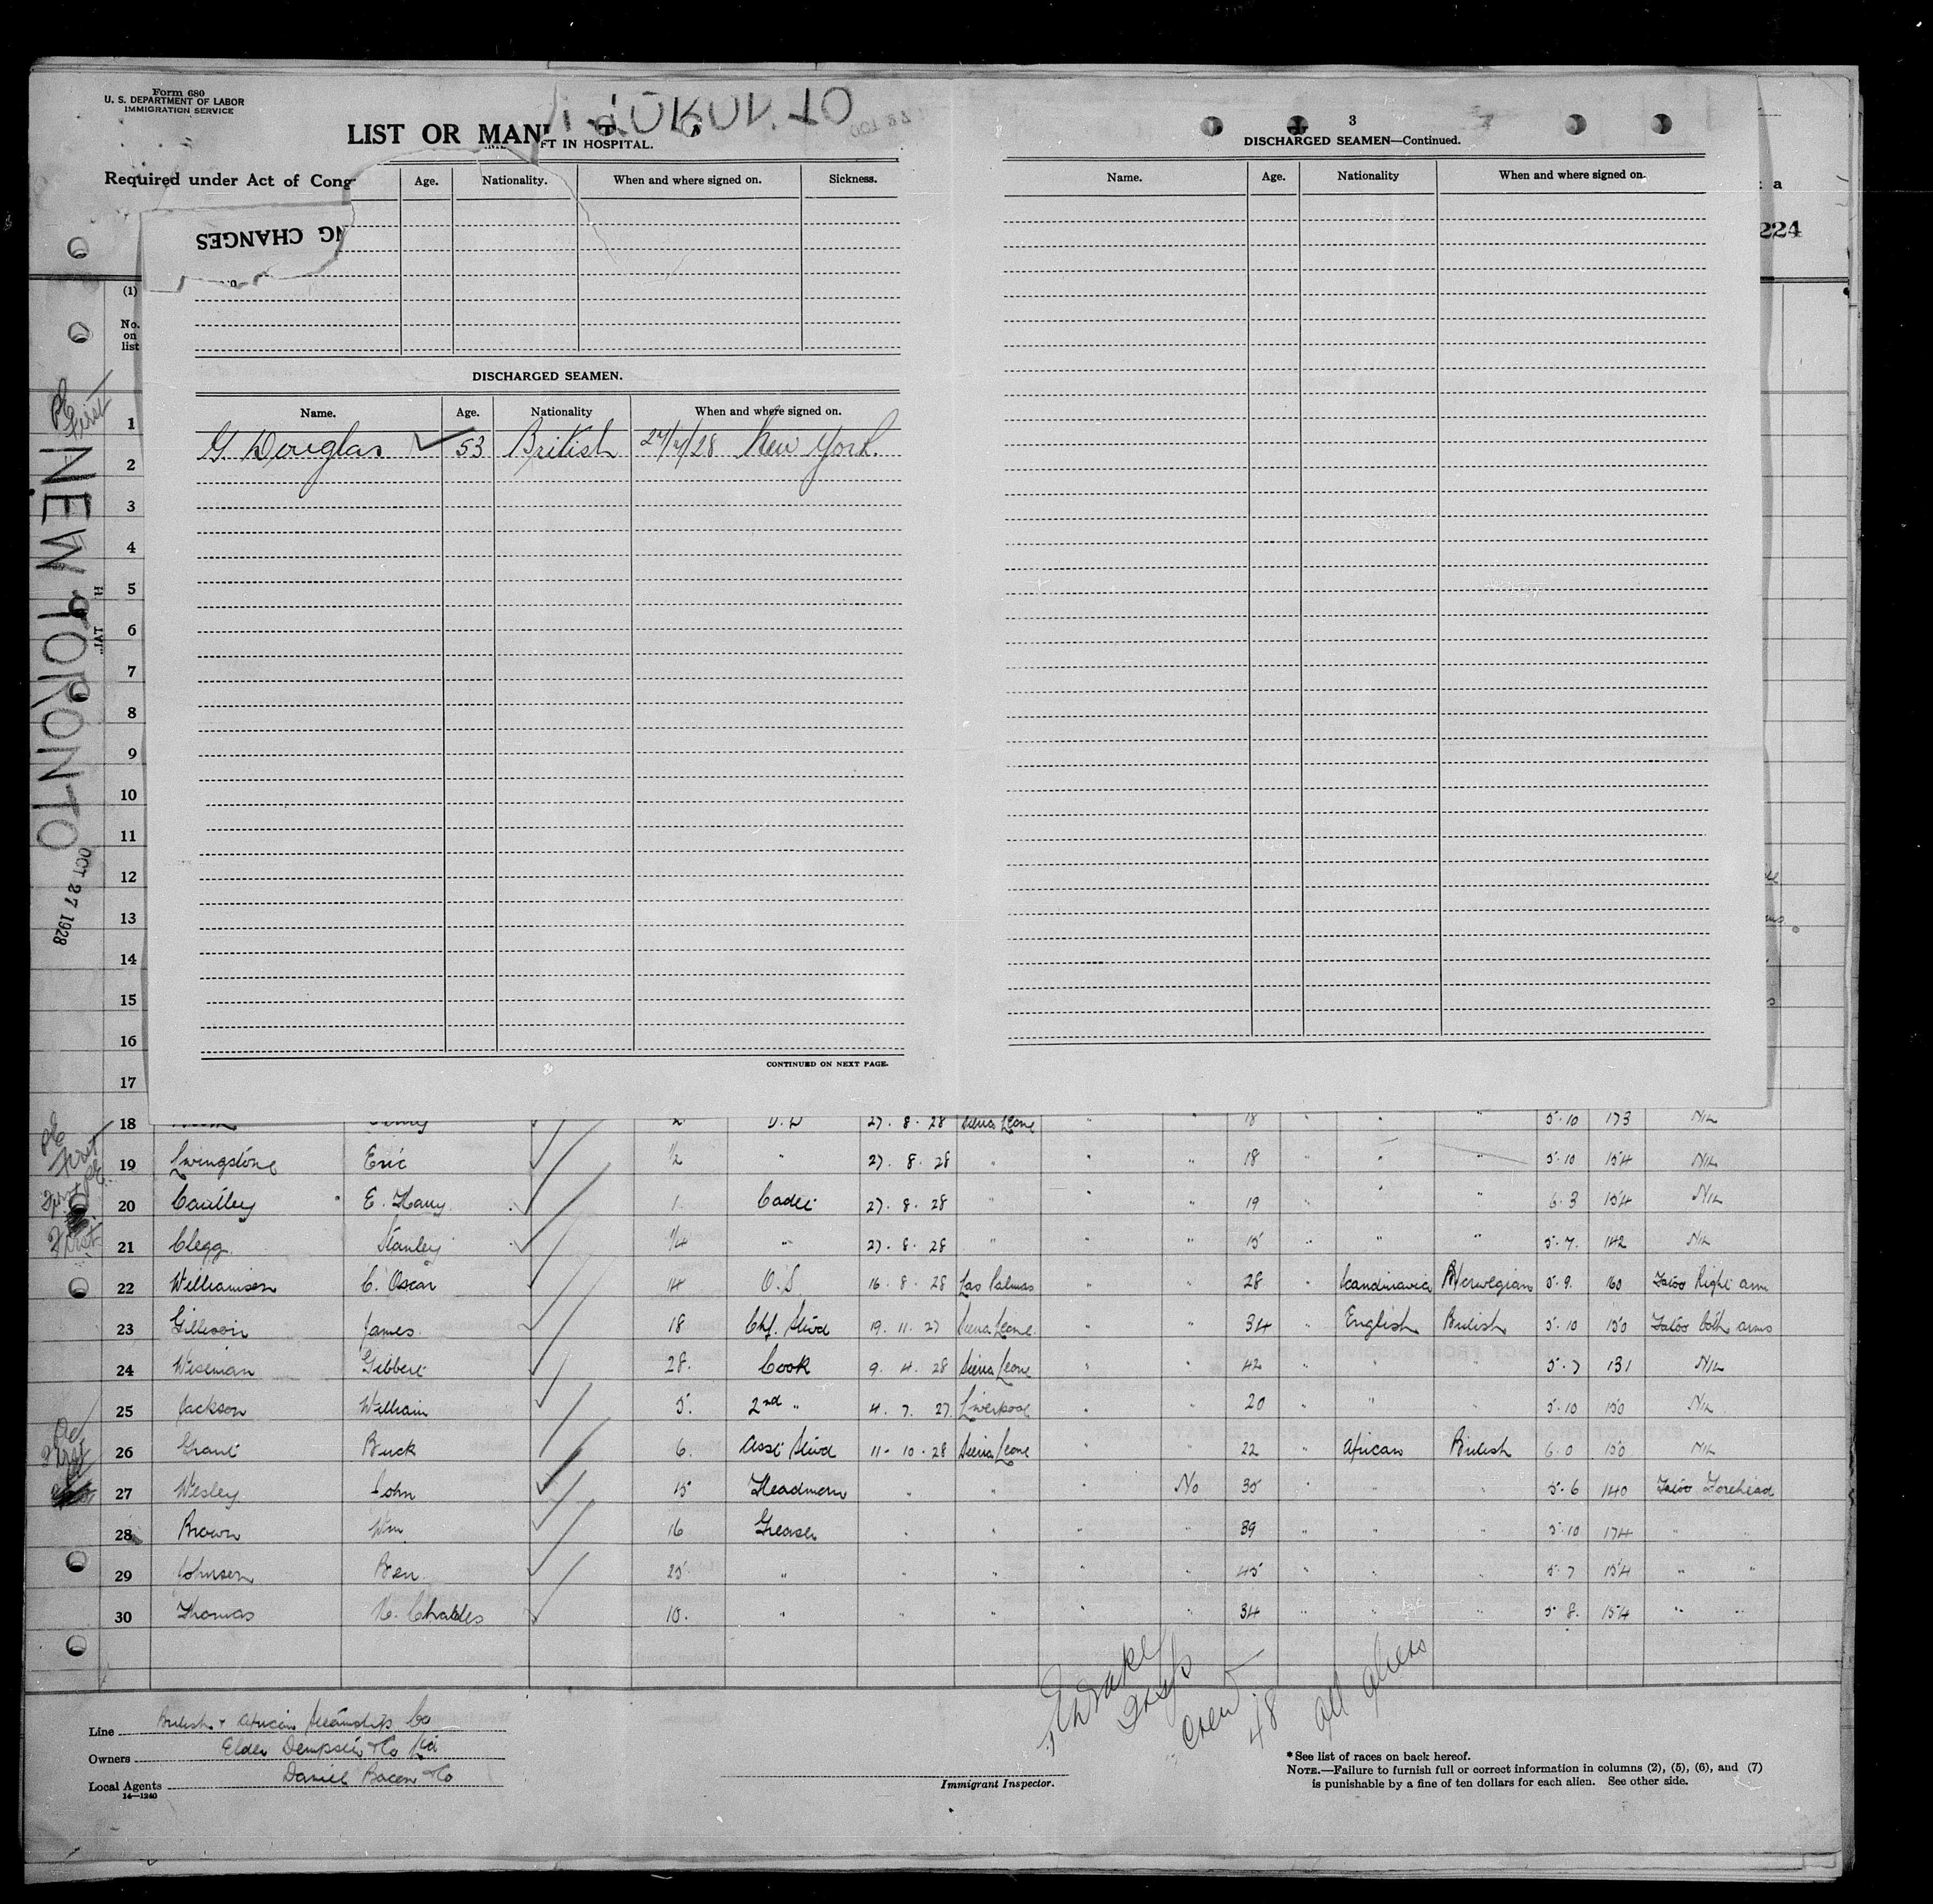 Form 680
U. S. DEPARTMENT OF LABOR
IMMIGRATION SERVICE
LIST OR MANI
FT IN HOSPITAL.
Required under Act of Cong
Age. Nationality. When and where signed on. Sickness.
NG CHANGES
3
DISCHARGED SEAMEN—Continued.
Name. Age. Nationality When and where signed on.
a
224
(1)
No. on list
DISCHARGED SEAMEN.
Name. Age. Nationality When and where signed on.
G. Douglas 53 British New York.
NEW TORONTO
OCT 27 1928
First
1
2
3
4
5
6
7
8
9
10
11
12
13
14
15
16
17
CONTINUED ON NEXT PAGE.
18 27. 8. 28 Sierra Leone " " 18 " " " 5.10 173 Nil
19 Livingstone Eric 1/2 " 27. 8. 28 " " " 18 " " " 5.10 154 Nil
20 E. Harry 1 Cadet 27. 8. 28 " " " 19 " " " 6.3 154 Nil
21 Clegg Stanley 1/4 " 27. 8. 28 " " " 15 " " " 5.7. 142 Nil
22 Williamson C. Oscar 14 O.S. 16. 8. 28 Las Palmas " " 28 " Scandinavia Norwegian 5.9. 160 Tatoo Right arm
23 James 18 Chf. Stwd 19. 11. 27 Sierra Leone " " 34 " English British 5.10 150 Tatoo both arms
24 Wiseman Gilbert 28. Cook 9. 4. 28 Sierra Leone " " 42 " " " 5.7 131 Nil
25 Jackson William 5. 2nd " 4. 7. 27 Liverpool " " 20 " " " 5.10 150 Nil
26 Grant Buck 6. Asst Stwd 11-10-28 Sierra Leone " " 22 " African British 6.0 150 Nil
27 Wesley John 15 Headman " " " No 35 " " " 5.6 140 Tatoo Forehead
28 Brown Wm 16 Greaser " " " " 39 " " " 5.10 174 " "
29 Johnson Ben 25 " " " " " 45 " " " 5.7 154 " "
30 Thomas Charles 10. " " " " " 34 " " " 5.8. 154 " "
Crew 48 all aliens
Line British & African Steamship Co
Owners Elder Dempster & Co Ltd
Local Agents Daniel Bacon & Co
14—1240
Immigrant Inspector.
*See list of races on back hereof.
NOTE.—Failure to furnish full or correct information in columns (2), (5), (6), and (7)
is punishable by a fine of ten dollars for each alien. See other side.